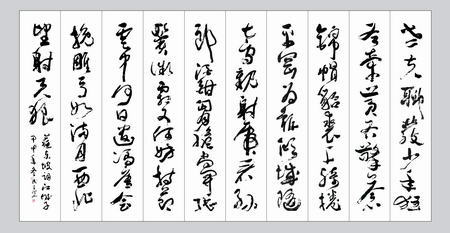 老夫聊發少年狂
左牽黃右擎蒼
錦帽貂裘千騎捲
平岡為報傾城隨
太守親射虎看孫
郎酒酣胸膽尚開張
鬢微霜又何妨持節
雲中何日遣馮唐會
挽雕弓如滿月西北
望射天狼
蘇東坡詞江城子